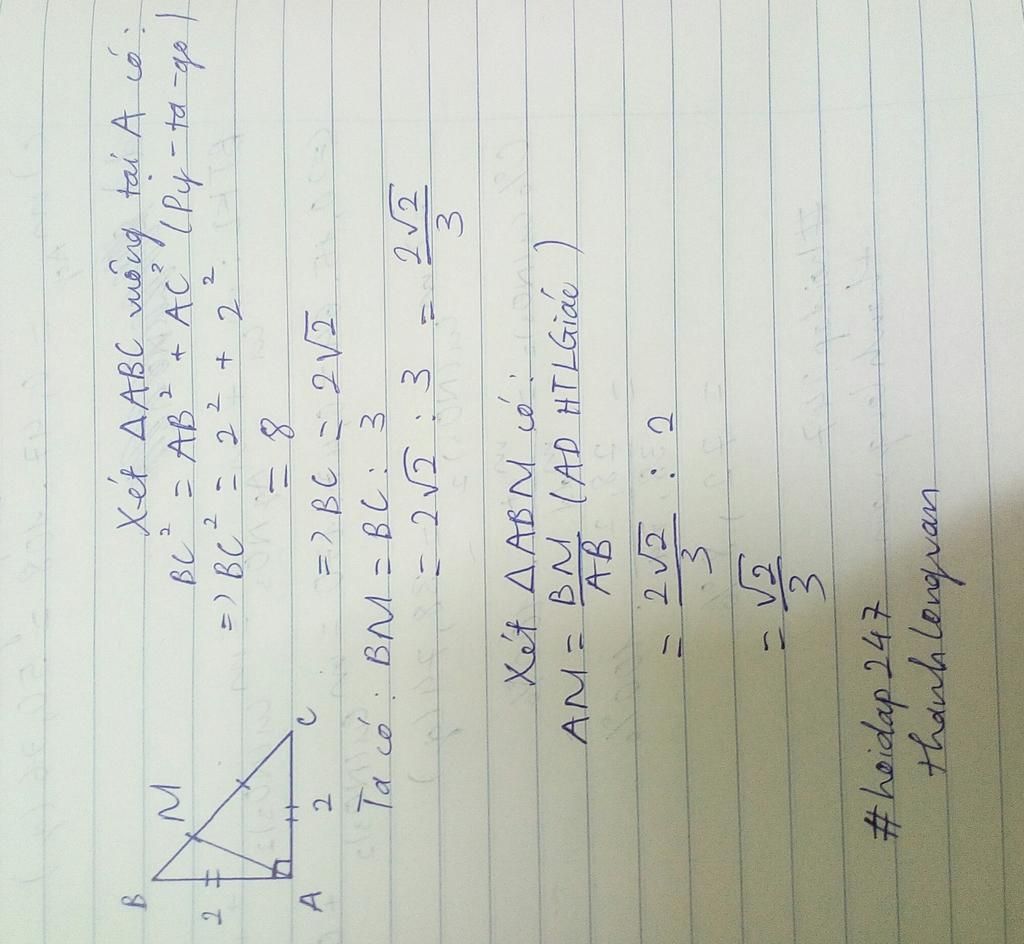 Xét ΔABC vuông tại A có:
BC² = AB² + AC² (Py-ta-go)
=> BC² = 2² + 2²
= 8
=> BC = 2√2
B
M
2
A
2
C
Ta có: BM = BC : 3
= 2√2 : 3 = 2√2/3
Xét ΔABM có:
AM = BM/AB (AD HTLGiác)
= 2√2/3 : 2
= √2/3
#hoidap247
thanhlongvan